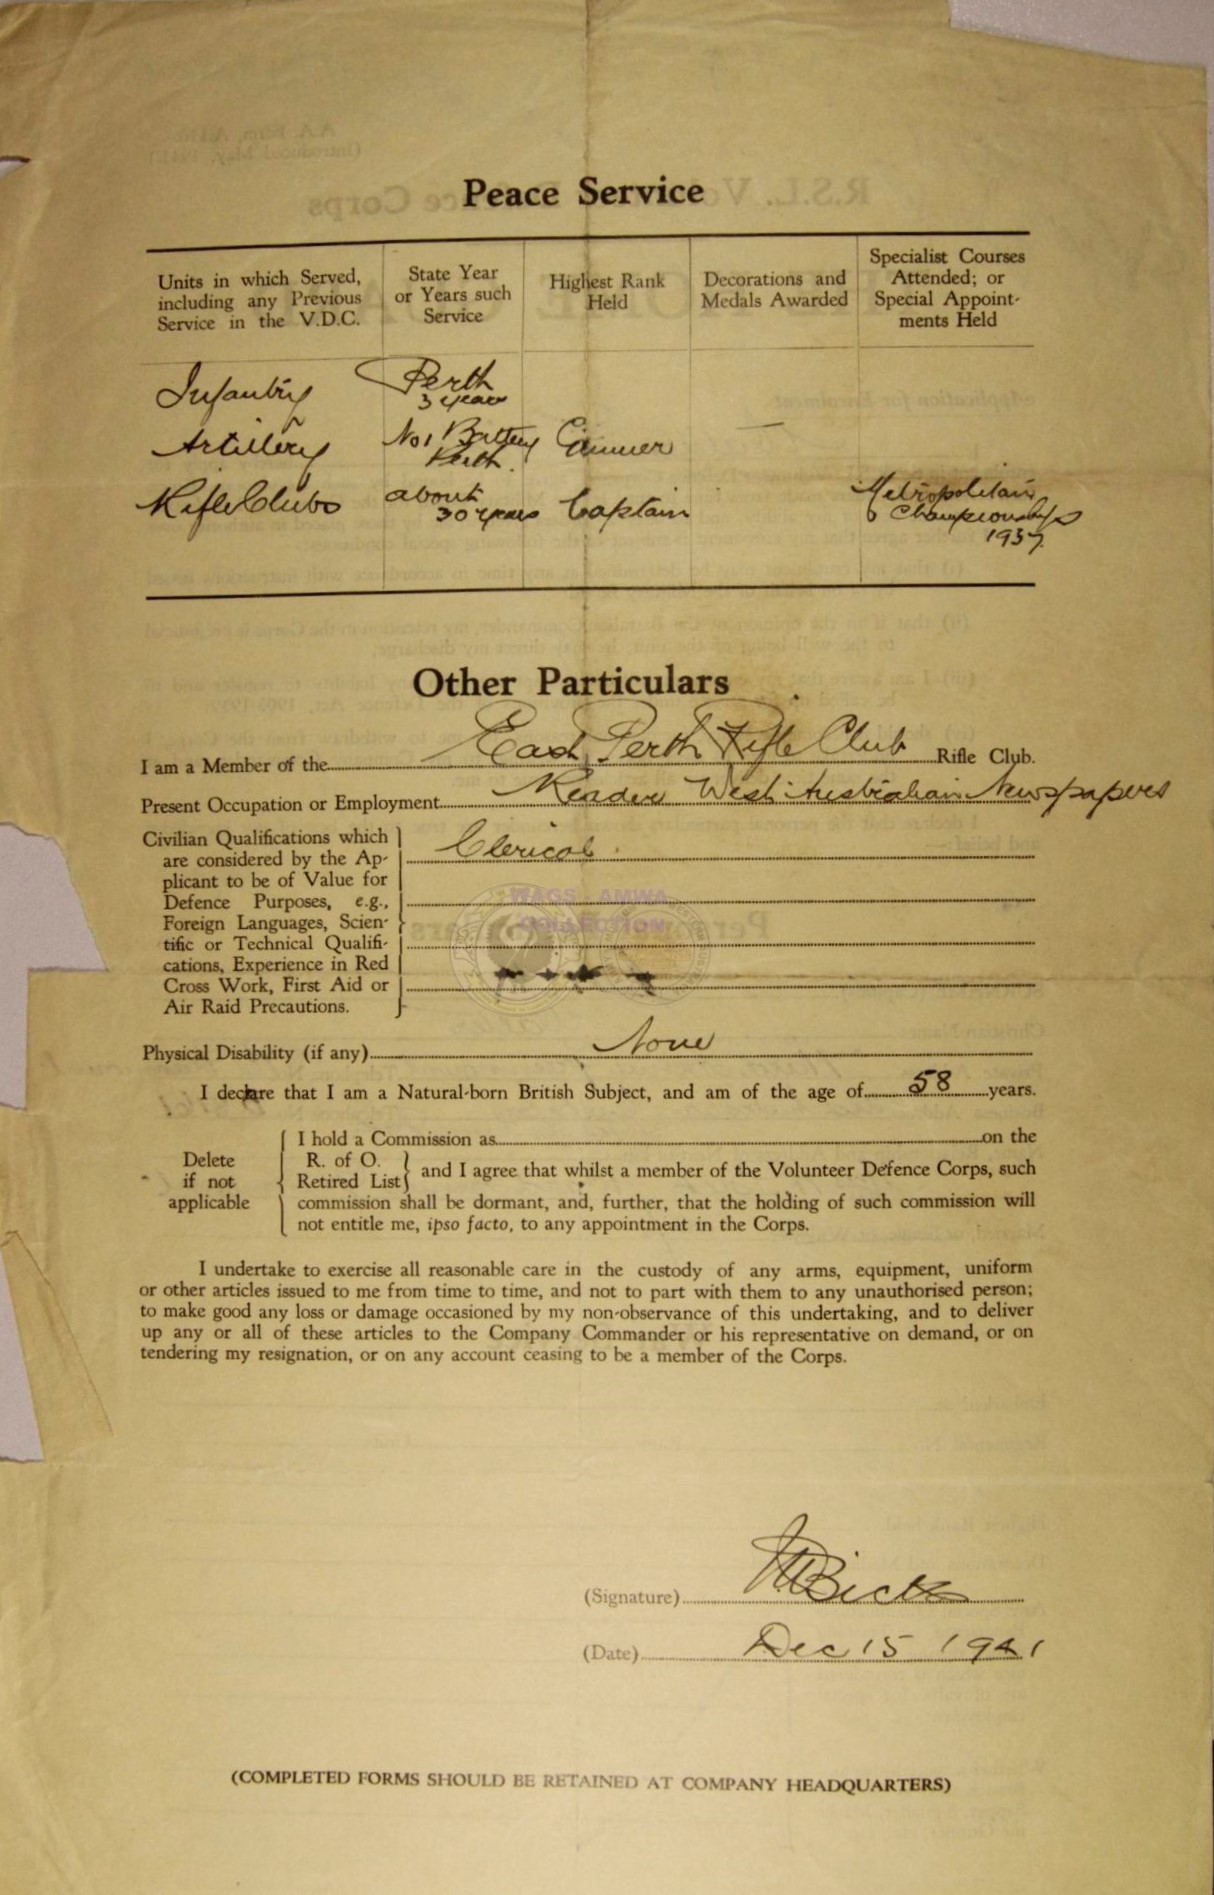 Peace Service
Units in which Served, including any Previous Service in the V.D.C.
State Year or Years such Service
Highest Rank Held
Decorations and Medals Awarded
Specialist Courses Attended; or Special Appoint-ments Held
Infantry Perth 3 years
Artillery No 1 Battery Perth. Gunner —
Rifle Clubs about 30 years Captain Metropolitan Championships 1937
Other Particulars
I am a Member of the East Perth Rifle Club Rifle Club.
Present Occupation or Employment Reader West Australian Newspapers
Civilian Qualifications which Clerical.
are considered by the Ap-
plicant to be of Value for
Defence Purposes, e.g.,
Foreign Languages, Scien-
tific or Technical Qualifi-
cations, Experience in Red
Cross Work, First Aid or
Air Raid Precautions.
WAGS AMWA
COLLECTION
Physical Disability (if any) None
I declare that I am a Natural-born British Subject, and am of the age of 58 years.
Delete if not applicable
I hold a Commission as on the
R. of O.
Retired List
and I agree that whilst a member of the Volunteer Defence Corps, such
commission shall be dormant, and, further, that the holding of such commission will
not entitle me, ipso facto, to any appointment in the Corps.
I undertake to exercise all reasonable care in the custody of any arms, equipment, uniform
or other articles issued to me from time to time, and not to part with them to any unauthorised person;
to make good any loss or damage occasioned by my non-observance of this undertaking, and to deliver
up any or all of these articles to the Company Commander or his representative on demand, or on
tendering my resignation, or on any account ceasing to be a member of the Corps.
(Signature)
(Date) Dec 15 1941
(COMPLETED FORMS SHOULD BE RETAINED AT COMPANY HEADQUARTERS)